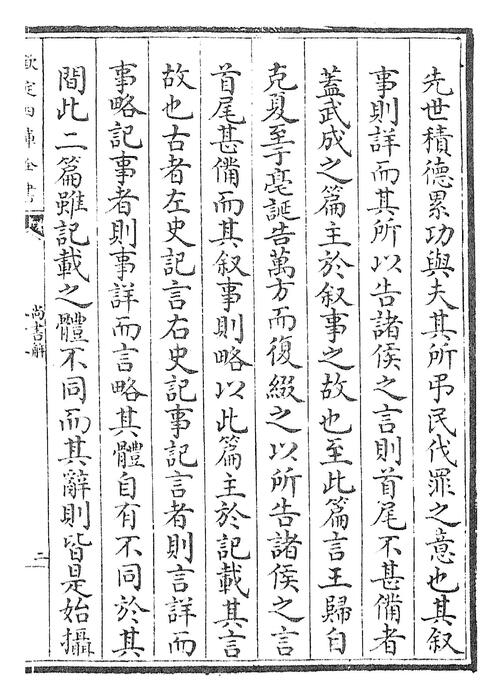 先世積德累功與夫其所弔民伐罪之意也其叙
事則詳而其所以告諸侯之言則首尾不甚備者
蓋武成之篇主於叙事之故也至此篇言王歸自
克夏至于亳誕告萬方而復綴之以所告諸侯之言
首尾甚備而其叙事則略以此篇主於記載其言
故也古者左史記言右史記事記言者則言詳而
事略記事者則事詳而言略其體自有不同於其
間此二篇雖記載之體不同而其辭則皆是始攝
欽定四庫全書
尚書解
二